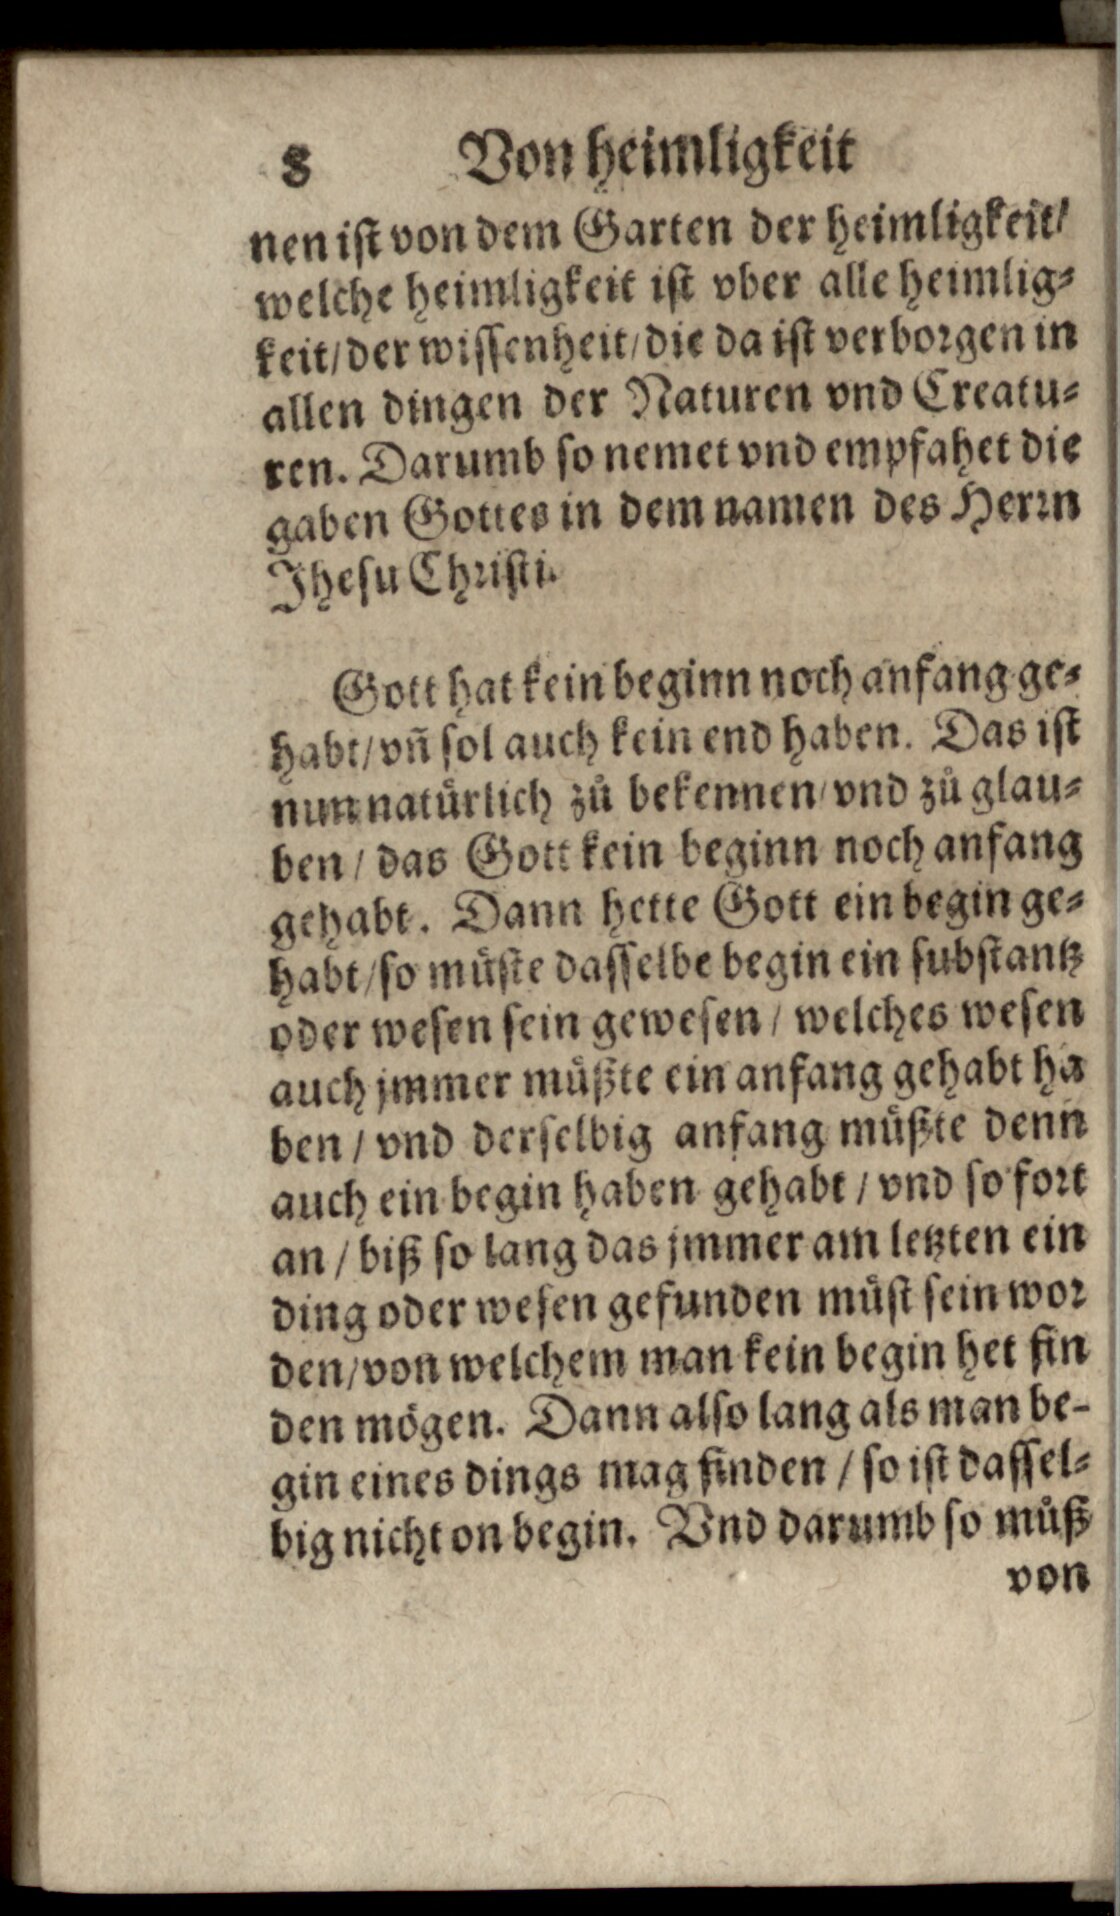 8 Von heimligkeit
nen ist von dem Garten der heimligkeit/
welche heimligkeit ist vber alle heimlig⸗
keit/der wissenheit/die da ist verborgen in
allen dingen der Naturen vnd Creatu⸗
ren. Darumb so nemet vnd empfahet die
gaben Gottes in dem namen des Herrn
Jhesu Christi.
Gott hat kein beginn noch anfang ge⸗
habt/vn̄ sol auch kein end haben. Das ist
nun natuͤrlich zuͦ bekennen/vnd zuͦ glau⸗
ben / das Gott kein beginn noch anfang
gehabt. Dann hette Gott ein begin ge⸗
habt/so muͤste dasselbe begin ein substantz
oder wesen sein gewesen / welches wesen
auch jmmer muͤßte ein anfang gehabt ha
ben / vnd derselbig anfang muͤßte denn
auch ein begin haben gehabt / vnd so fort
an / biß so lang das jmmer am letzten ein
ding oder wesen gefunden muͤst sein wor
den/von welchem man kein begin het fin
den moͤgen. Dann also lang als man be-
gin eines dings mag finden / so ist dassel⸗
big nicht on begin. Vnd darumb so muͦß
von